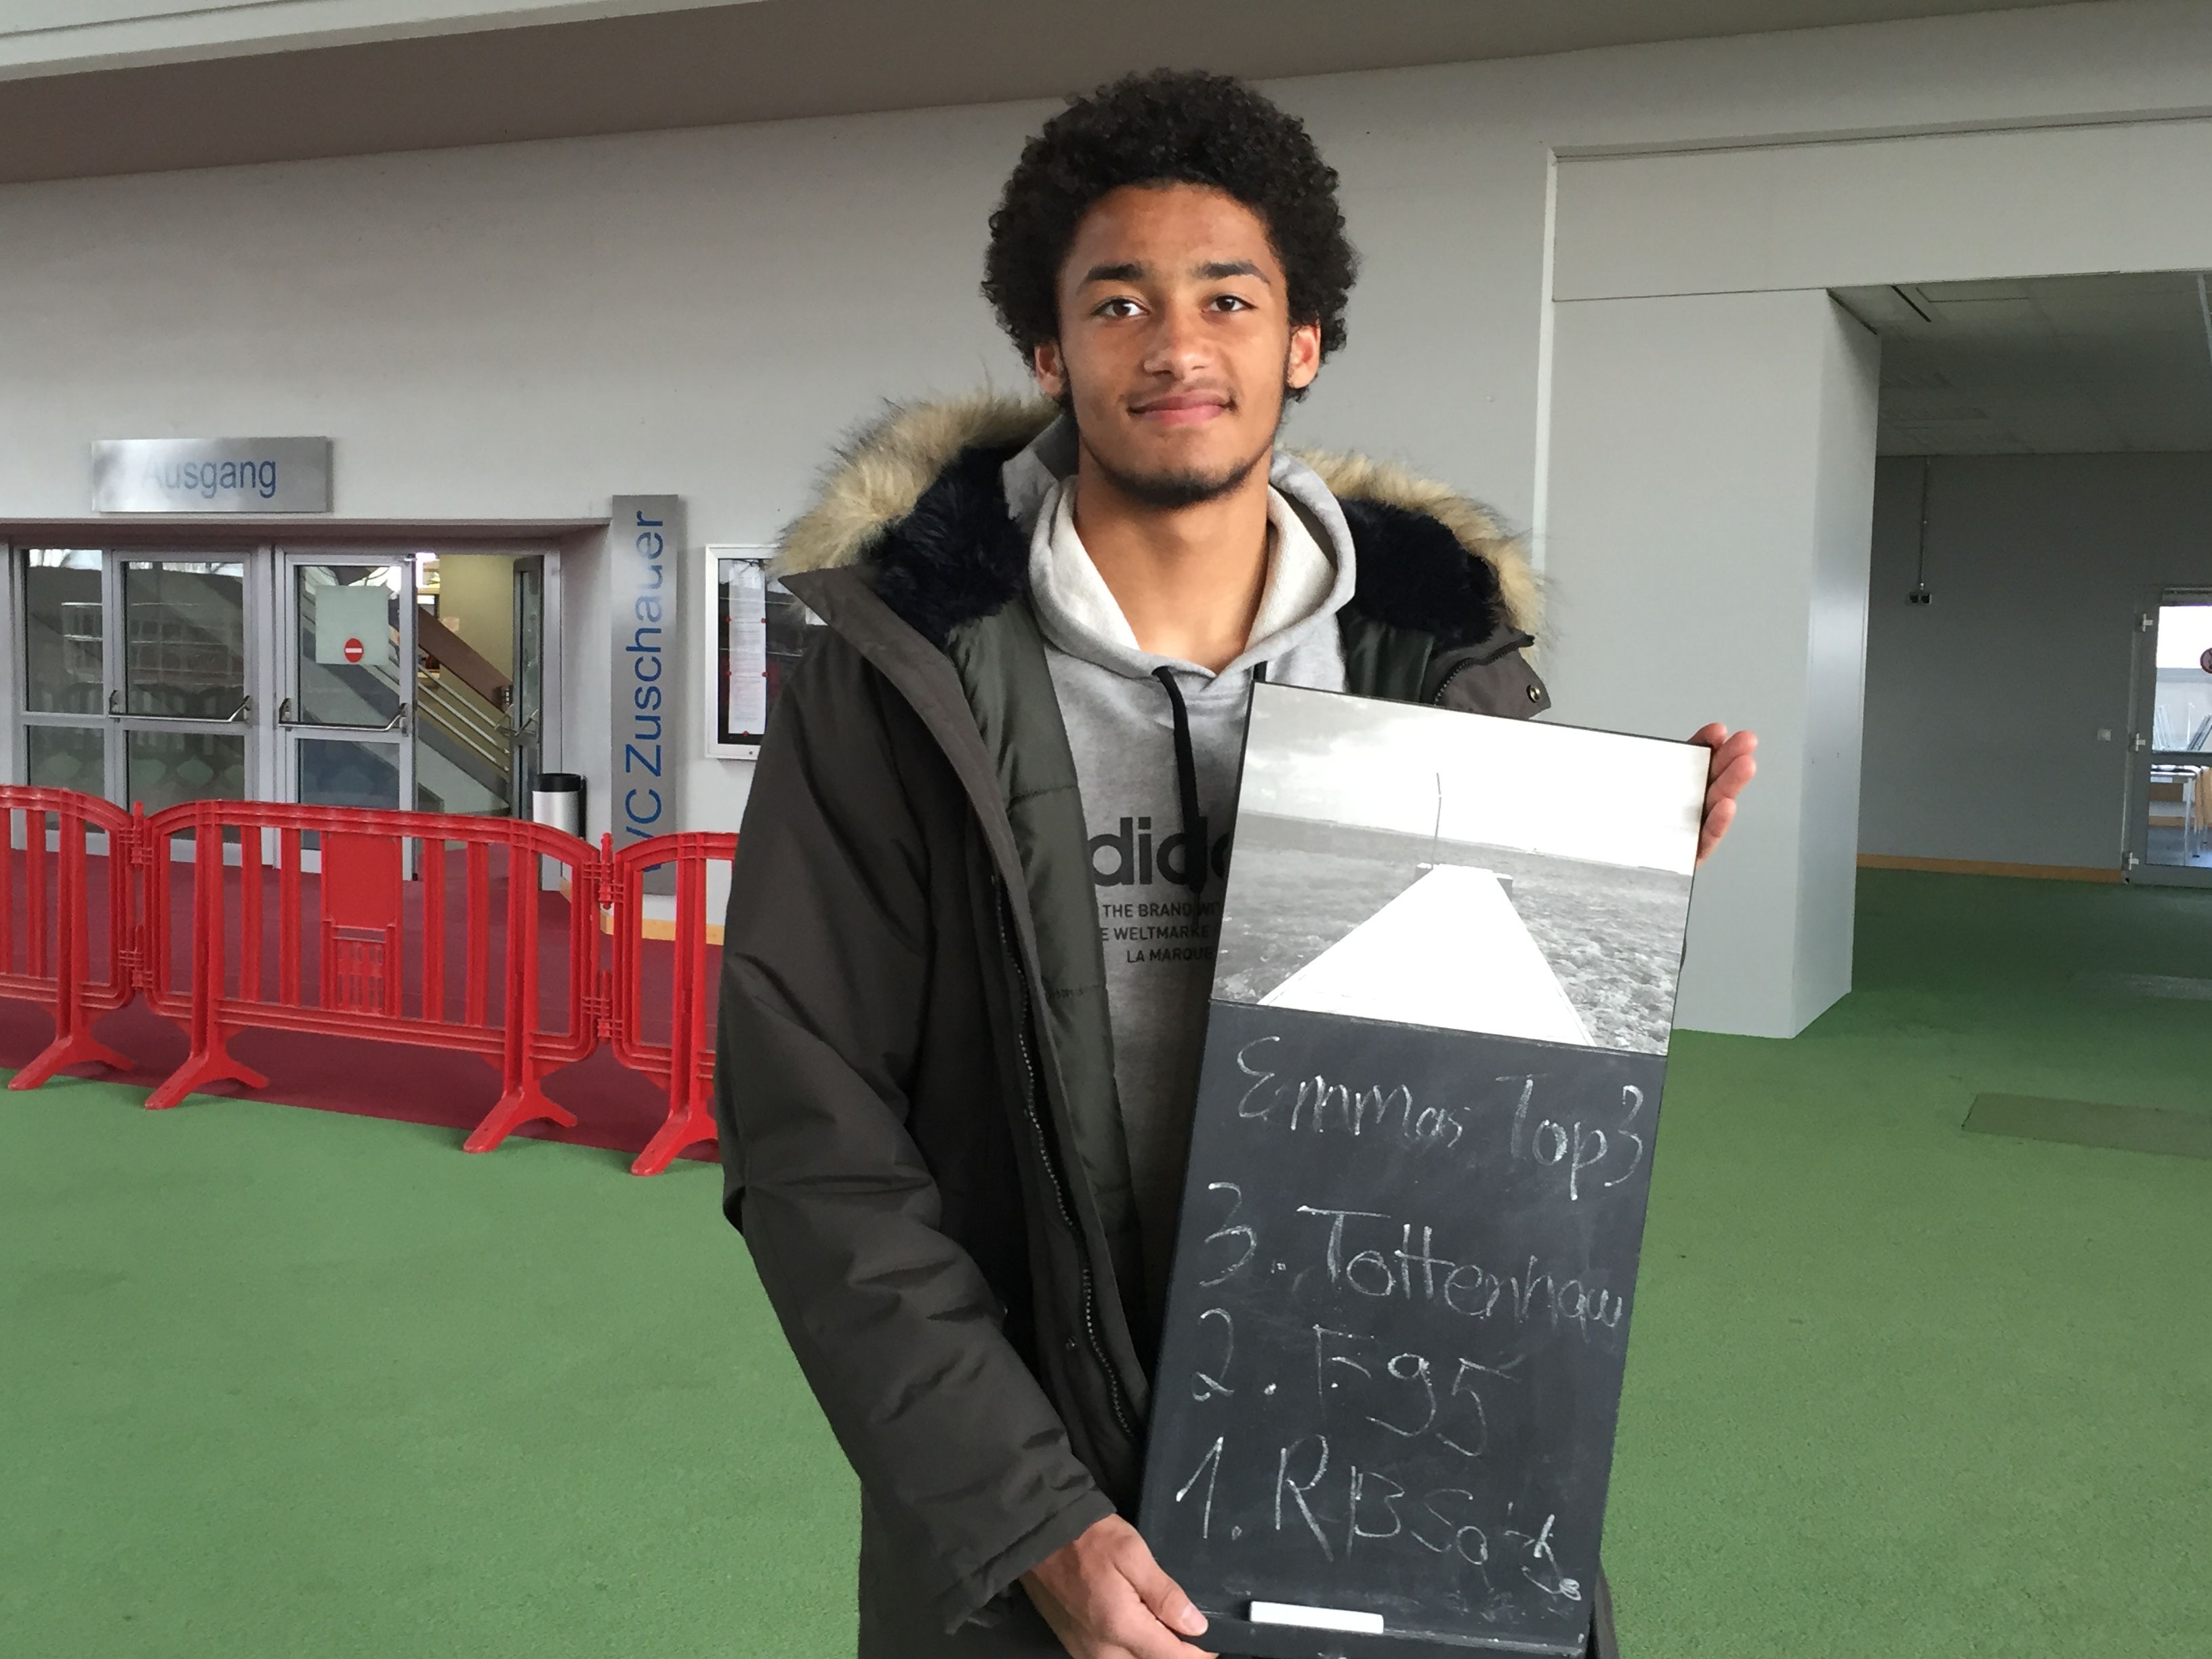 Ausgang
WC Zuschauer
THE BRAND
WELTMARKE
LA MARQUE
Emmas Top 3
3. Tottenham
2. F95
1. RB